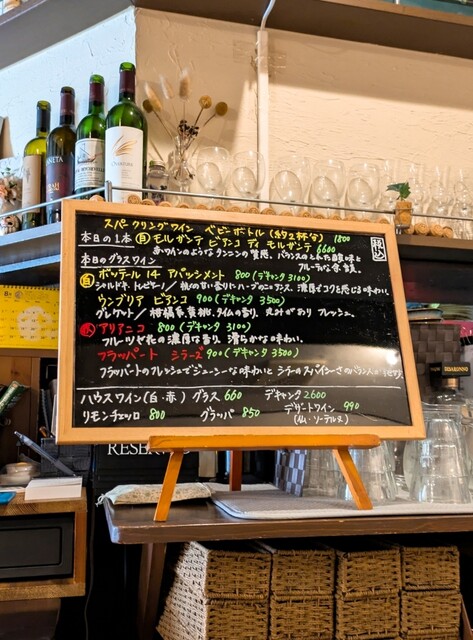 スパークリングワイン ベビーボトル(約2杯分) 1800
本日の1本 白 モルガンテ ビアンコ ディ モルガンテ 6600
赤ワインのようなタンニンの質感、バランスのとれた酸味と
フルーティな余韻。
本日のグラスワイン
白 ポッテール 14 アパッシメント 800 (デキャンタ 3100)
シャルドネ、トレビアーノ/
濃厚でコクを感じる味わい。
ウンブリア ビアンコ 900 (デキャンタ 3500)
グレケット/柑橘系、黄桃、タイムの香り。フレッシュ。
赤 アリアニコ 800 (デキャンタ 3100)
フルーツや花の濃厚な香り、滑らかな味わい。
フラッパート シラーズ 900 (デキャンタ 3500)
フラッパートのフレッシュでジューシーな味わいとシラーのスパイシーさの
ハウスワイン(白・赤) グラス 660 デキャンタ 2600
リモンチェッロ 800 グラッパ 850 デザートワイン 990
PLANETA